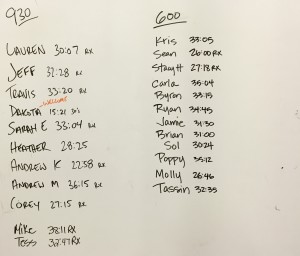 930
LAUREN 30:07 RX
JEFF 31:28 RX
TRAVIS 33:20 RX
DAKOTA 15:21
SARAH E 33:04 RX
HEATHER 28:25
ANDREW K 22:58 RX
ANDREW M 36:15 RX
COREY 27:15 RX
MIKE 38:11 RX
TESS 33:47 RX
600
Kris 33:05
Sean 26:00 RX
Stacy H 27:18 RX
Carla 35:04
Byron 33:15
Ryan 34:45
Jamie 31:30
Brian 31:00
Sol 30:24
Poppy 35:12
Molly 26:46
Tassin 32:35